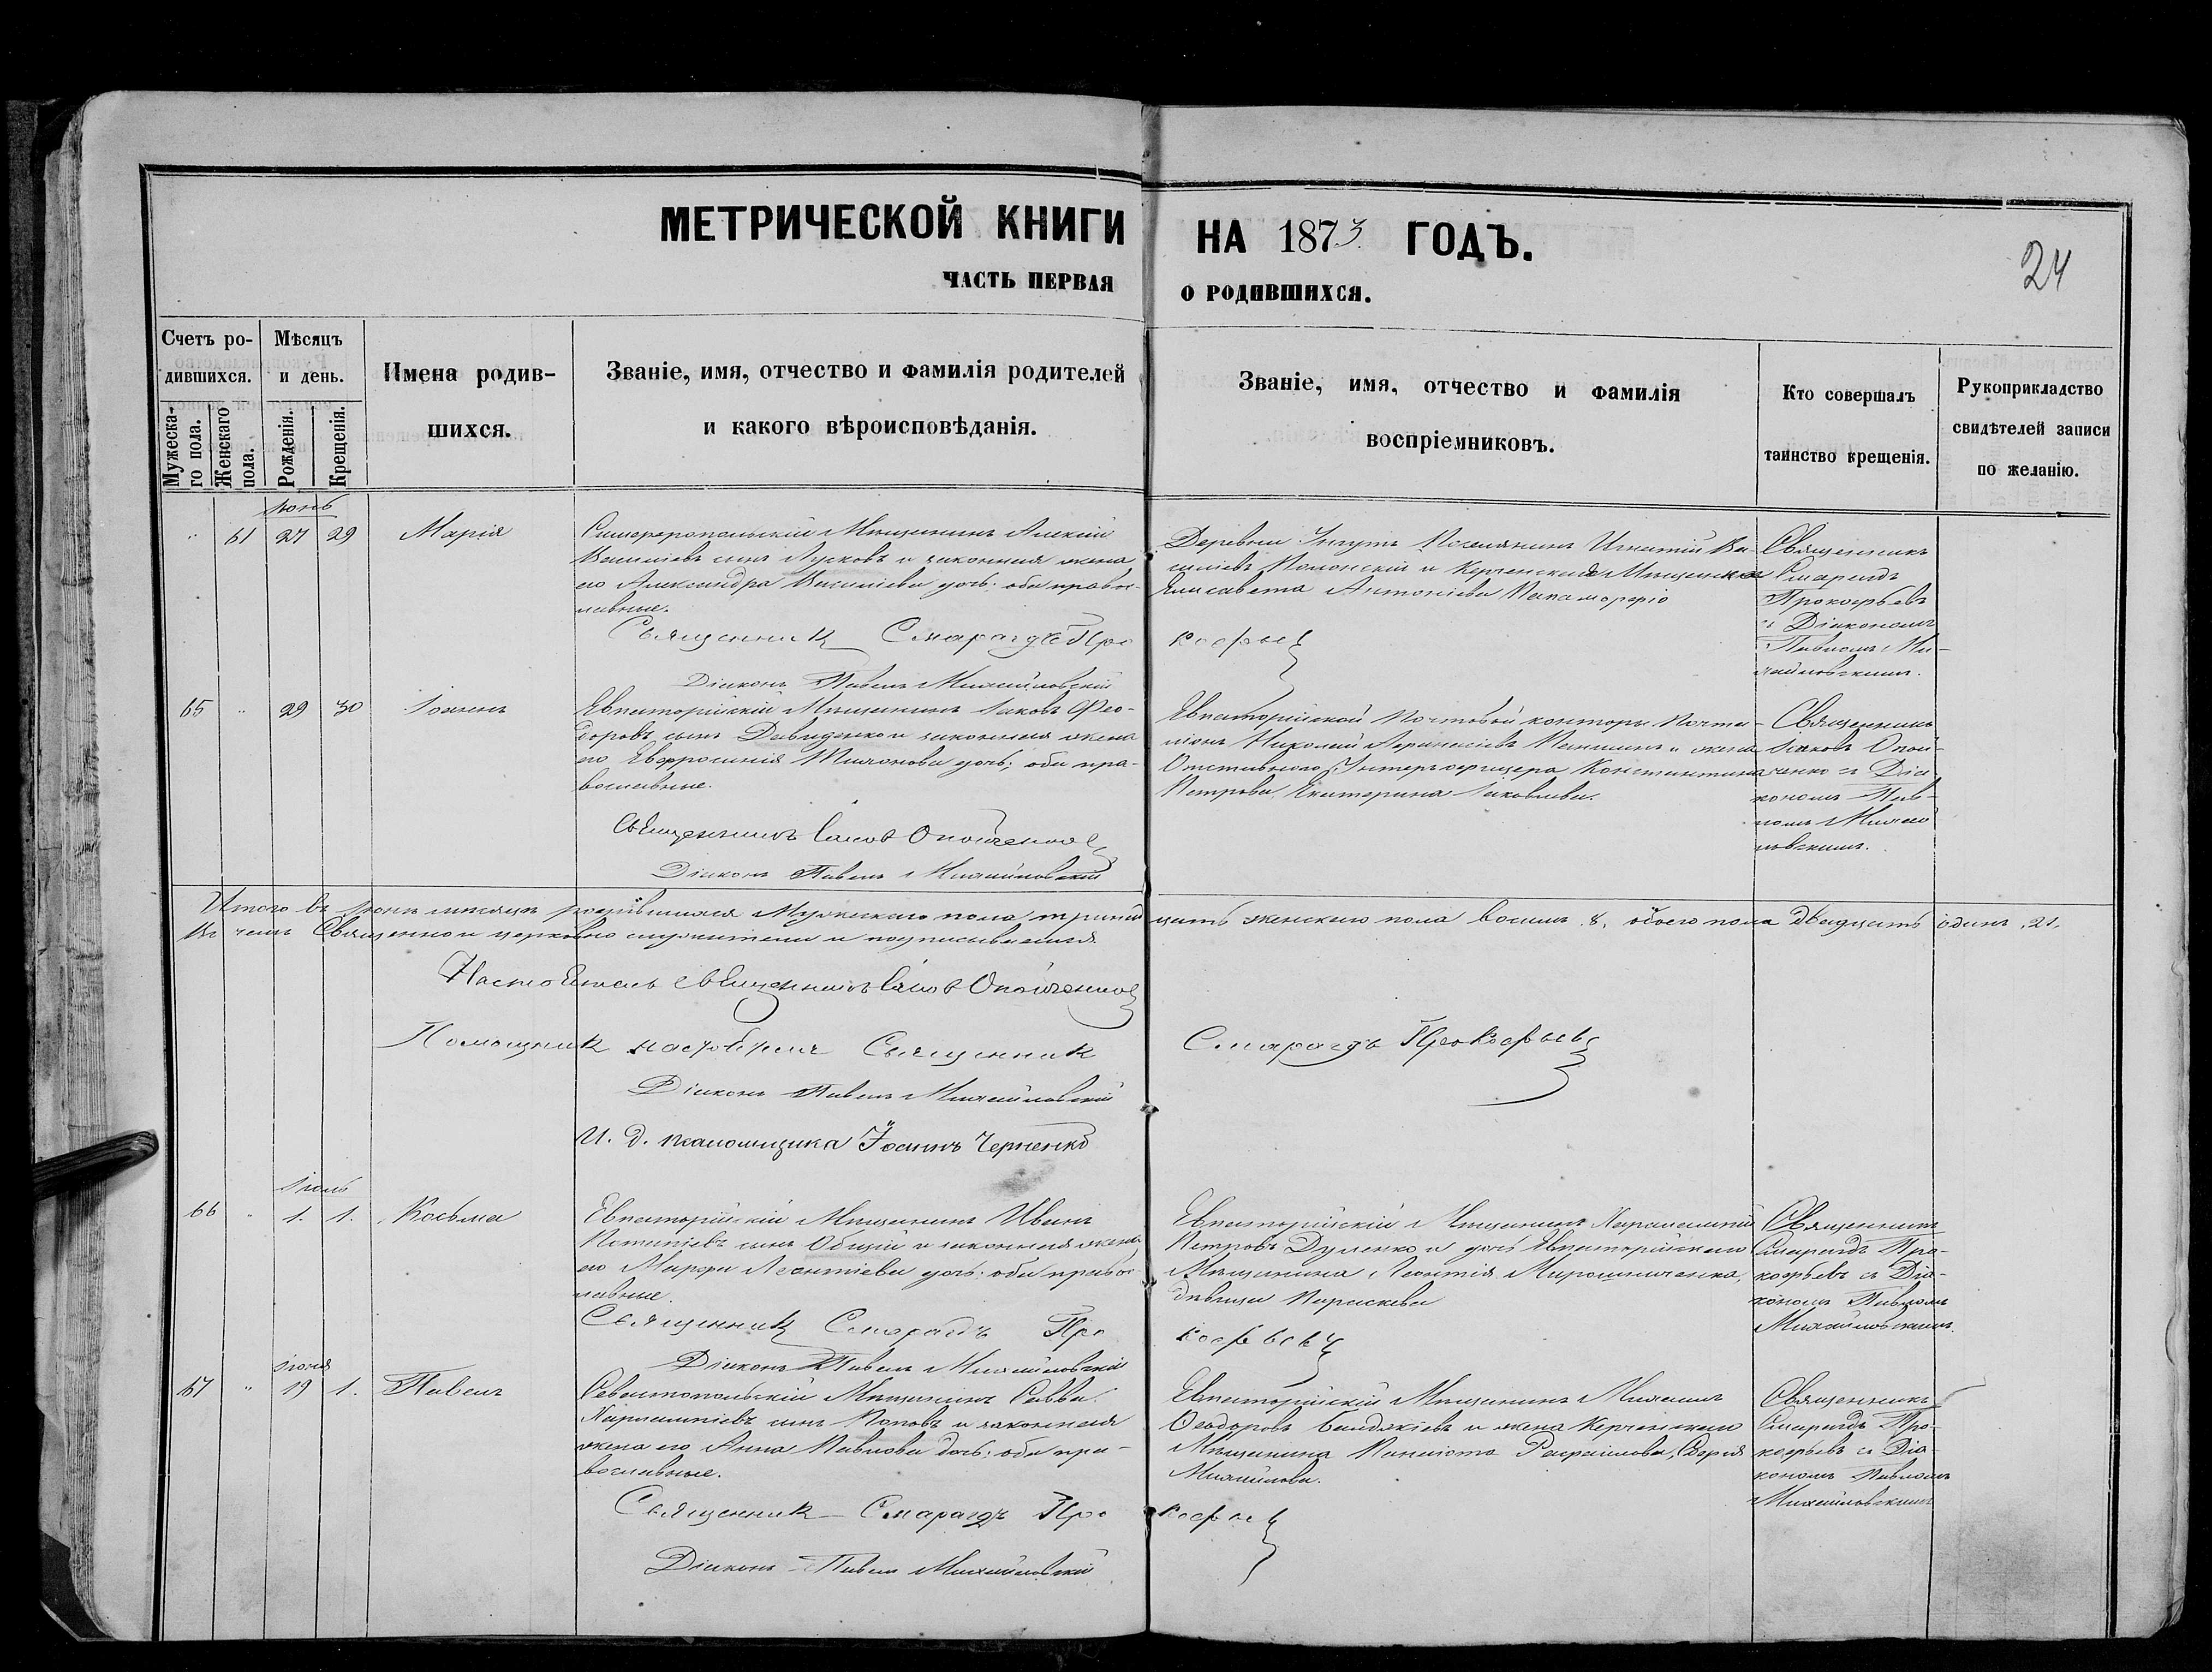 МЕТРИЧЕСКОЙ КНИГИ НА 1873 ГОДЪ.
ЧАСТЬ ПЕРВАЯ О РОДИВШИХСЯ.
24
Счетъ родившихся.
Мужескаго пола.
Женскаго пола.
Мѣсяцъ и день.
Рожденія.
Крещенія.
Имена родившихся.
Званіе, имя, отчество и фамилія родителей
и какого вѣроисповѣданія.
Званіе, имя, отчество и фамилія
воспріемниковъ.
Кто совершалъ
таинство крещенія.
Рукоприкладство
свидѣтелей записи
по желанію.
Іюнь
" 61 27 29 Марія
Симферопольскій Мѣщанинъ Алексій
Василіевъ сынъ и законная жена
его Александра Василіева дочь; оба правос-
лавные.
Священникъ Смарагдъ Про
Діаконъ Павелъ Михайловскій
Деревни Поселянинъ Игнатій Ва-
силіевъ и Керченская Мѣщанка
Елисавета Антоніева
кофьев
Священникъ
Смарагдъ
Прокофьевъ
съ Діакономъ
Павломъ Ми-
хайловскимъ.
65 " 29 30 Іоаннъ
Евпаторійскій Мѣщанинъ Іаковъ Фео-
доровъ сынъ Давиденко и законная жена
его Евфросинія дочь; оба пра-
вославные.
Священникъ Іаковъ Опойченко
Діаконъ Павелъ Михайловскій
Евпаторійской Почтовой конторы Почта-
ліонъ Николай и жена
Отставного Унтеръ офицера Константина
Петрова, Екатерина Іаковлева.
Священникъ
Іаковъ Опой-
ченко съ Діа
кономъ Пав-
ломъ Михай
ловскимъ.
Итого въ Іюнѣ мѣсяцѣ родившихся Мужескаго пола тринад цать женскаго пола восемь 8, обоего пола двадцать одинъ 21,
Въ чемъ Священно и церковно служители и подписываемся
Настоятель священникъ Іаковъ Опойченко
Помощникъ настоятеля Священникъ Смарагдъ Прокофьевъ
Діаконъ Павелъ Михайловскій
И. д. псаломщика Іоаннъ Черненко
Іюль
66 " 1. 1. Косьма
Евпаторійскій Мѣщанинъ Иванъ
сынъ Общій и законная жена
его Марфа Леонтіева дочь; оба правос-
лавные.
Священникъ Смарагдъ Про
Діаконъ Павелъ Михайловскій
Евпаторійскій Мѣщанинъ Харалампій
Петровъ и дочь Евпаторійскаго
Мѣщанина Леонтія Мирошниченка,
дѣвица Параскева
кофьевъ
Священникъ
Смарагдъ Про-
кофьевъ съ Діа-
кономъ Павломъ
Михайловскимъ.
Іюня
67 " 19 1. Павелъ
Севастопольскій Мѣщанинъ Савва
Харлампіевъ сынъ Поповъ и законная
жена его Анна Павлова дочь; оба пра-
вославные.
Священникъ Смарагдъ Про
Діаконъ Павелъ Михайловскій
Евпаторійскій Мѣщанинъ Михаилъ
Феодоровъ и жена Керченскаго
Мѣщанина
Михайлова.
кофьев
Священникъ
Смарагдъ Про-
кофьевъ съ Діа-
кономъ Павломъ
Михайловскимъ